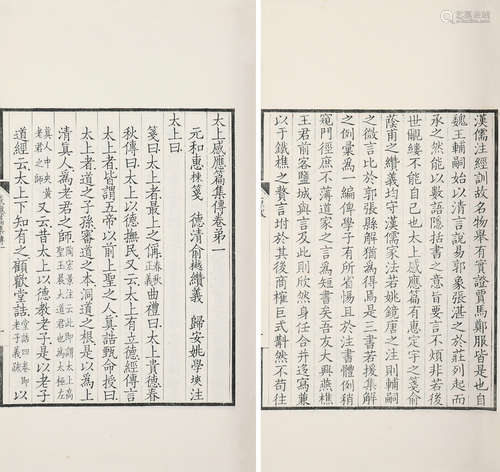 漢儒注經訓故名物舉有實證賈馬鄭服皆是也自
魏王輔嗣始以清言說易郭象張湛之於莊列起而
承之然能以數語隱括書之意旨要言不煩非若後
世覼縷不能自己也太上感應篇有惠定宇之箋俞
蔭甫之纘義均守漢儒家法若姚鏡唐之注則輔嗣
之微言比於郭張縣解猶為得焉是三書若援集解
之例彙為一編俾學子有所省惕且於注書體例稍
窺門徑庶不薄道家之言為短書矣吾友大興燕樵
王君前客鹽城與言及此則欣然身任合并迻寫兼
以于鐵樵之贅言坿於其後商榷巨式斠然不苟往
太上感應篇集傳卷第一
元和惠棟箋 德清俞樾纘義 歸安姚學塽注
太上曰
箋曰太上者最上之偁春秋正義曲禮曰太上貴德春
秋傳曰太上以德撫民又云太上有立德經傳言
太上者皆謂五帝以前上聖之人真誥甄命授曰
太上者道之子孫審道之本洞道之根是以為上
清真人為老君之師陶宏景注云此即謂太上高聖玉晨大道君也為太極左
真人中央黃老君之師又云昔太上以德教老子是以老子
道經云太上下知有之顧歡堂誥堂誥四卷即老子義疏以